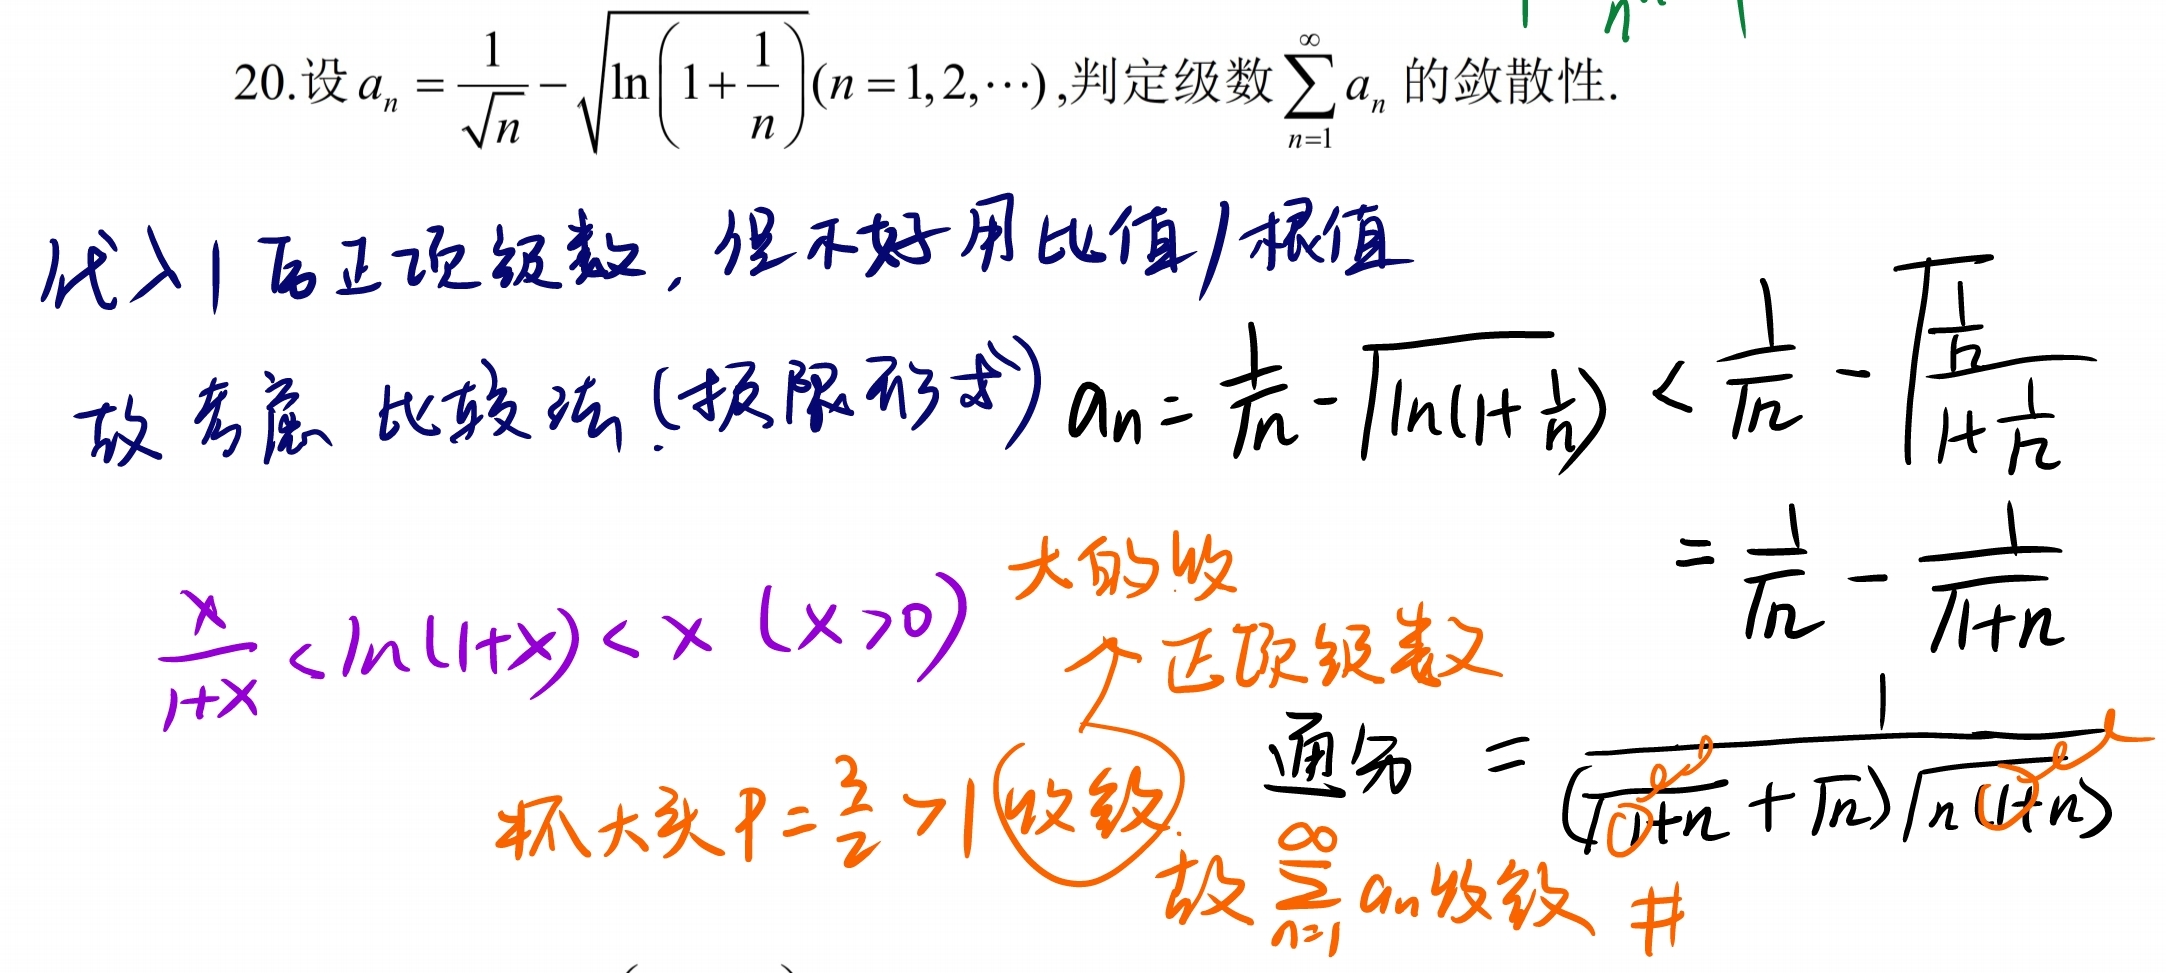 20.设 a_n = 1/√n − √(ln(1+1/n)) (n=1,2,⋯),判定级数 ∑_{n=1}^{∞} a_n 的敛散性.
代入1后正项级数,但不好用比值/根值
故考虑比较法(极限形式)
a_n = 1/√n - √(ln(1+1/n)) < 1/√n - √((1/n)/(1+1/n))
= 1/√n - 1/√(1+n)
x/(1+x) < ln(1+x) < x (x>0)
大的收
正项级数
通分 = 1/((√(1+n) + √n)√(n(1+n)))
抓大头 P = 3/2 > 1 收敛.
故 ∑_{n=1}^{∞} a_n 收敛 #